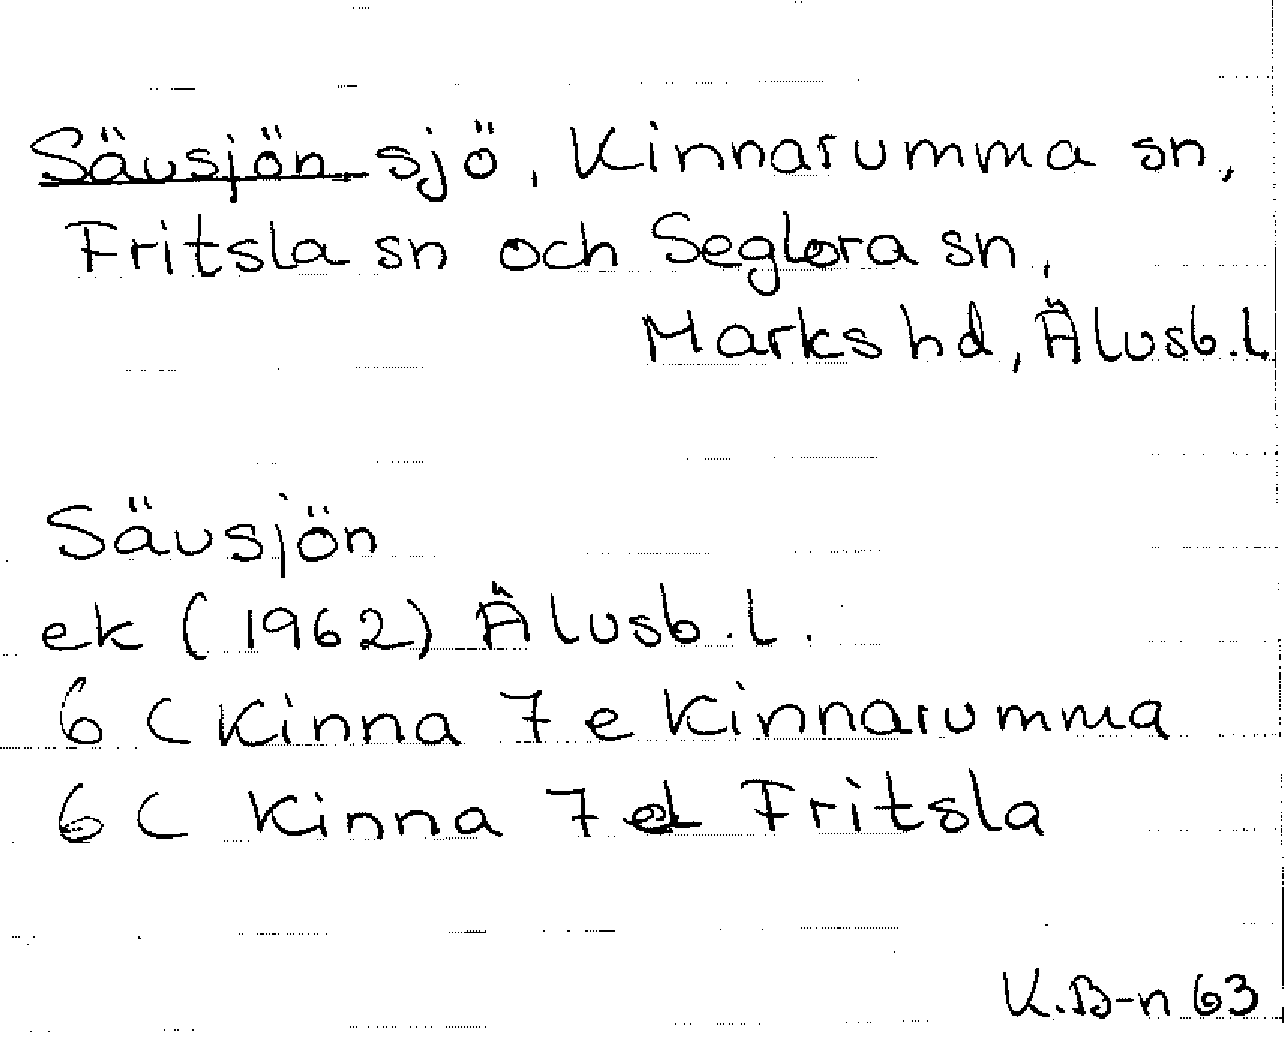 Sävsjön sjö, Kinnarumma sn,
Fritsla sn och Seglora sn,
Marks hd, Älvsb.l.
Sävsjön
ek (1962) Älvsb.l.
6 C Kinna 7 e Kinnarumma
6 C Kinna 7 d Fritsla
K.B-n 63